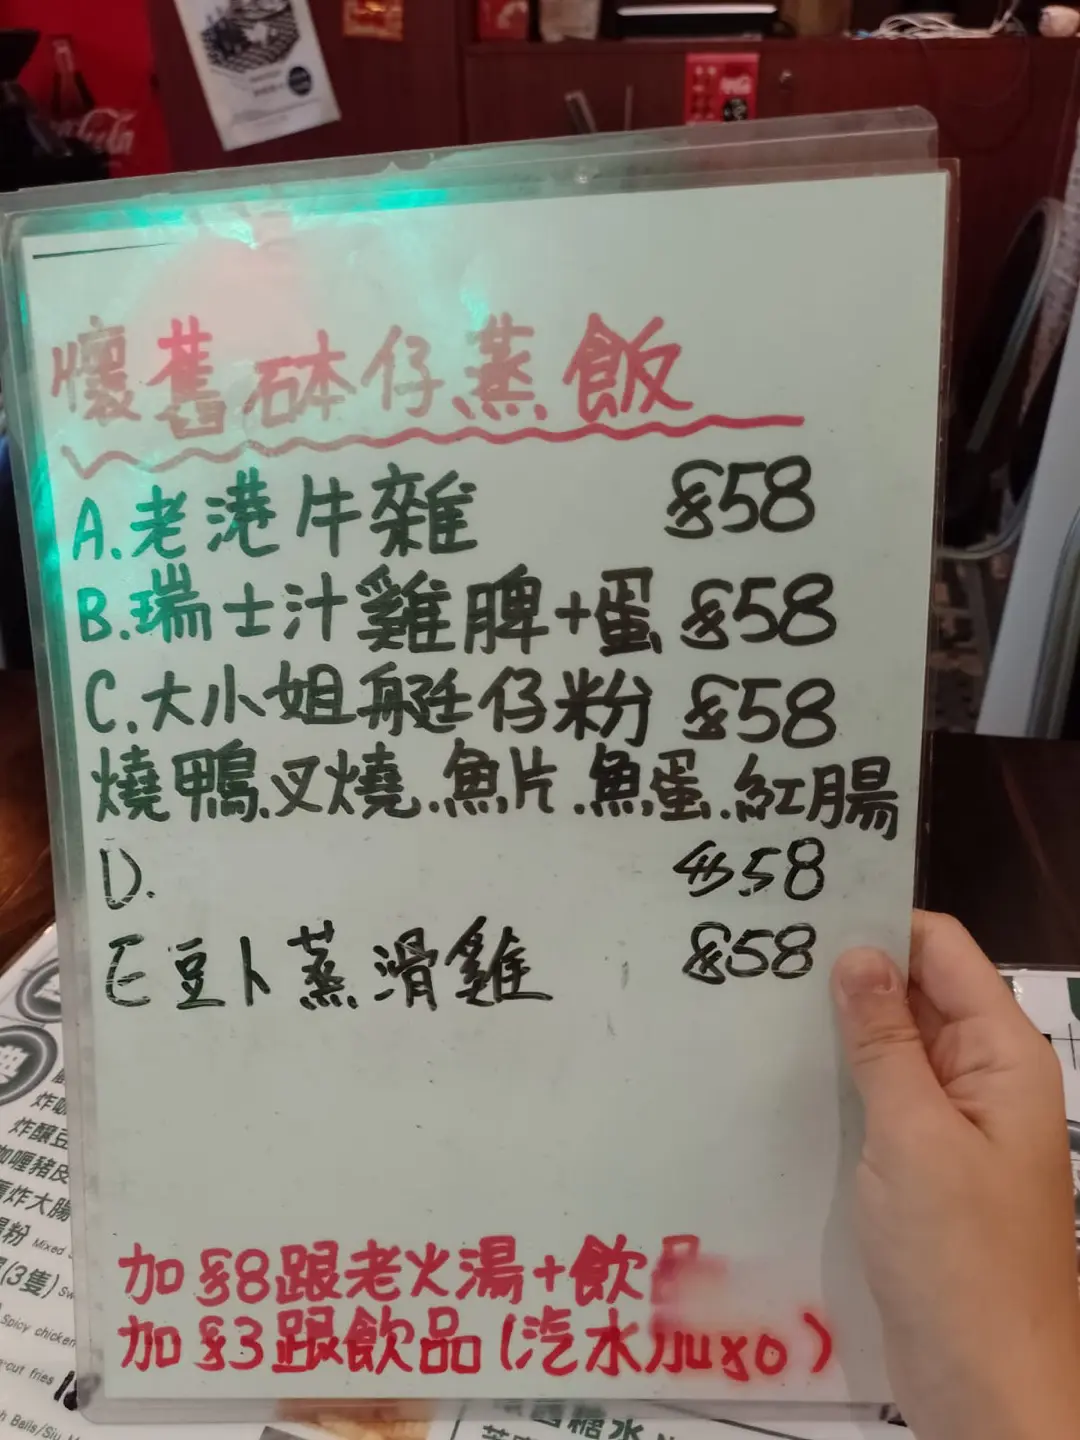 懷舊砵仔蒸飯
A.老港牛雜 $58
B.瑞士汁雞脾+蛋 $58
C.大小姐艇仔粉 $58
燒鴨.叉燒.魚片.魚蛋.紅腸
D. $58
E豆卜蒸滑雞 $58
加$8跟老火湯+飲
加$3跟飲品(汽水
炸釀豆
咖喱豬皮
炸大腸
Mixed
(3隻)
Spicy chicken
-cut fries
Balls/Siu